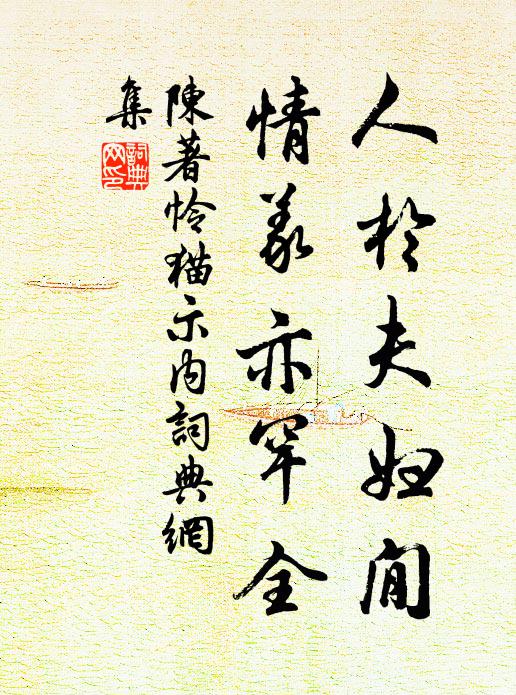 人於夫婦間
情義亦罕全
陳著怜猫示内詞典網
集
詞典網印